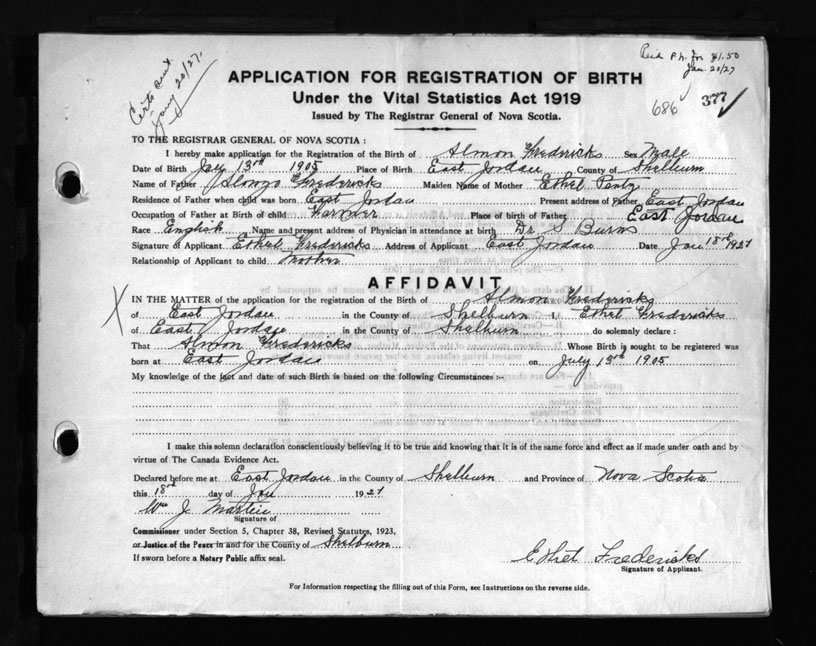 Certs sent
Jany 20/27.
Reid P.N. for $1.50
Jan. 20/27
686 377
APPLICATION FOR REGISTRATION OF BIRTH
Under the Vital Statistics Act 1919
Issued by The Registrar General of Nova Scotia.
TO THE REGISTRAR GENERAL OF NOVA SCOTIA :
I hereby make application for the Registration of the Birth of Almon Fredericks Sex Male
Date of Birth July 13th 1905 Place of Birth East Jordan County of Shelburn
Name of Father Alonzo Fredericks Maiden Name of Mother Ethel
Residence of Father when child was born East Jordan Present address of Father East Jordan
Occupation of Father at Birth of child Farmer Place of birth of Father East Jordan
Race English Name and present address of Physician in attendance at birth Dr S Burns
Signature of Applicant Ethel Fredericks Address of Applicant East Jordan Date Jan 18th 1927
Relationship of Applicant to child Mother
AFFIDAVIT
X IN THE MATTER of the application for the registration of the Birth of Almon Fredericks
of East Jordan in the County of Shelburn I Ethel Fredericks
of East Jordan in the County of Shelburn do solemnly declare :
That Almon Fredericks Whose Birth is sought to be registered was
born at East Jordan on July 13th 1905
My knowledge of the fact and date of such Birth is based on the following Circumstances :-
I make this solemn declaration conscientiously believing it to be true and knowing that it is of the same force and effect as if made under oath and by
virtue of The Canada Evidence Act.
Declared before me at East Jordan in the County of Shelburn and Province of Nova Scotia
this 18th day of Jan 1927
Wm J Martin
Signature of
Commissioner under Section 5, Chapter 38, Revised Statutes, 1923,
or Justice of the Peace in and for the County of Shelburn
If sworn before a Notary Public affix seal.
Ethel Fredericks
Signature of Applicant.
For Information respecting the filling out of this Form, see Instructions on the reverse side.